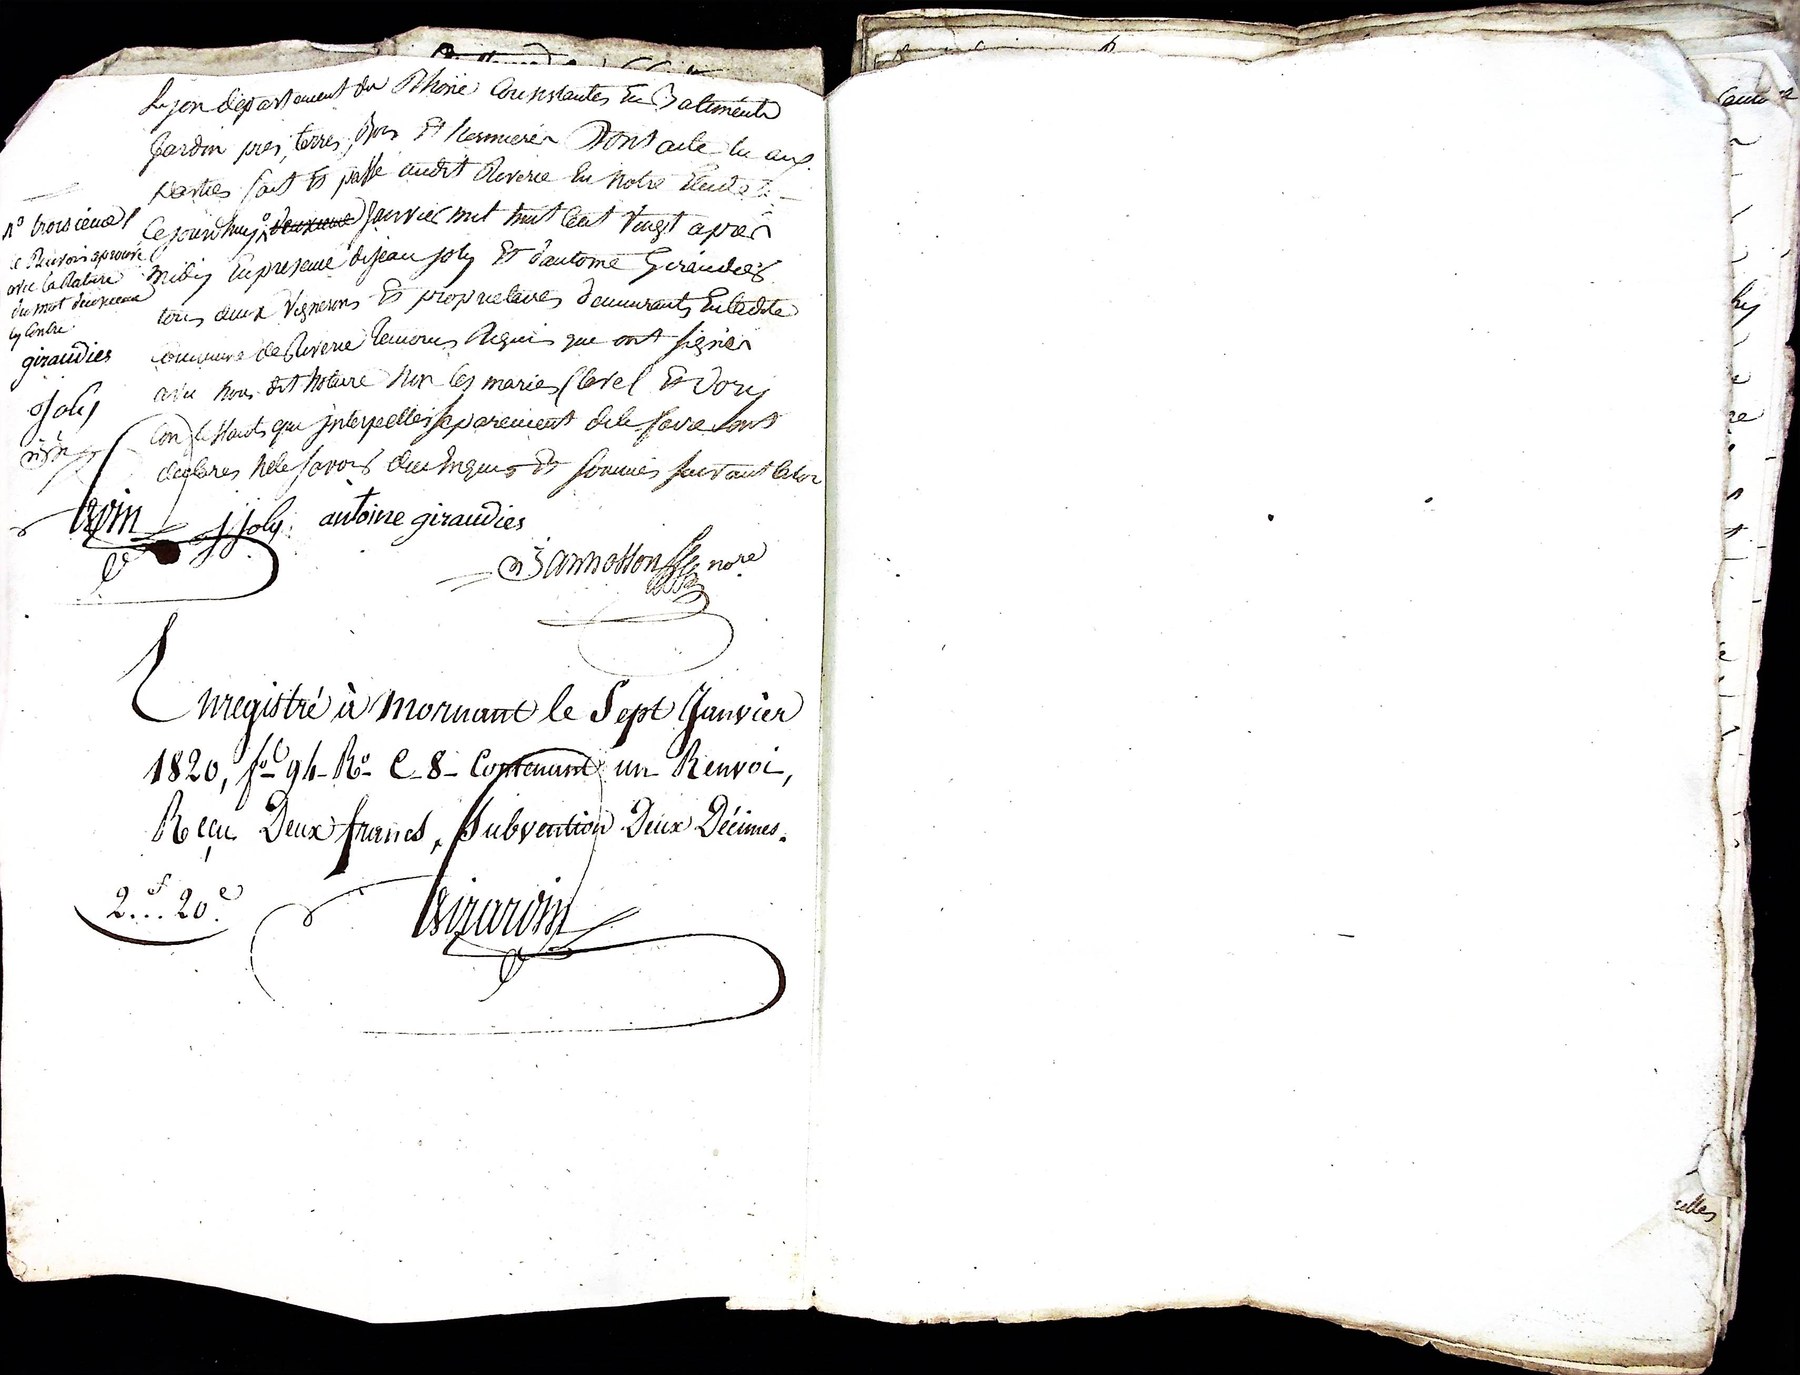 Lyon département du Rhône Consistantes En Batiments
Jardin pres, terres, bois Et hermieres Dont acte lu aux
parties fait Et passé audit Riverie En notre Etude
Ce jourdhuy deuxieme Janvier mil huit Cent Vingt apres
midy En presence de jean joly Et d'antoine Giraudies
tous deux Vignerons Et proprietaires demeurants En ladite
Commune de Riverie temoins Requis que ont signés
avec nous dit Notaire Non les mariés Clavel Et
que interpellés separement de le faire ont
declarés ne le savoir du Enquis Et sommés suivant la loi
no troisieme
le Renvoi aprouvé
avec la Rature
du mot deuxieme
cy Contre
giraudies
Joly
j joly. antoine giraudies
nore
Enregistré à Mornant le Sept Janvier
1820, fol. 94 Ro C. 8 Contenant un Renvoi,
Reçu Deux francs, Subvention Deux Décimes.
2f.. 20c
Girardin
celles